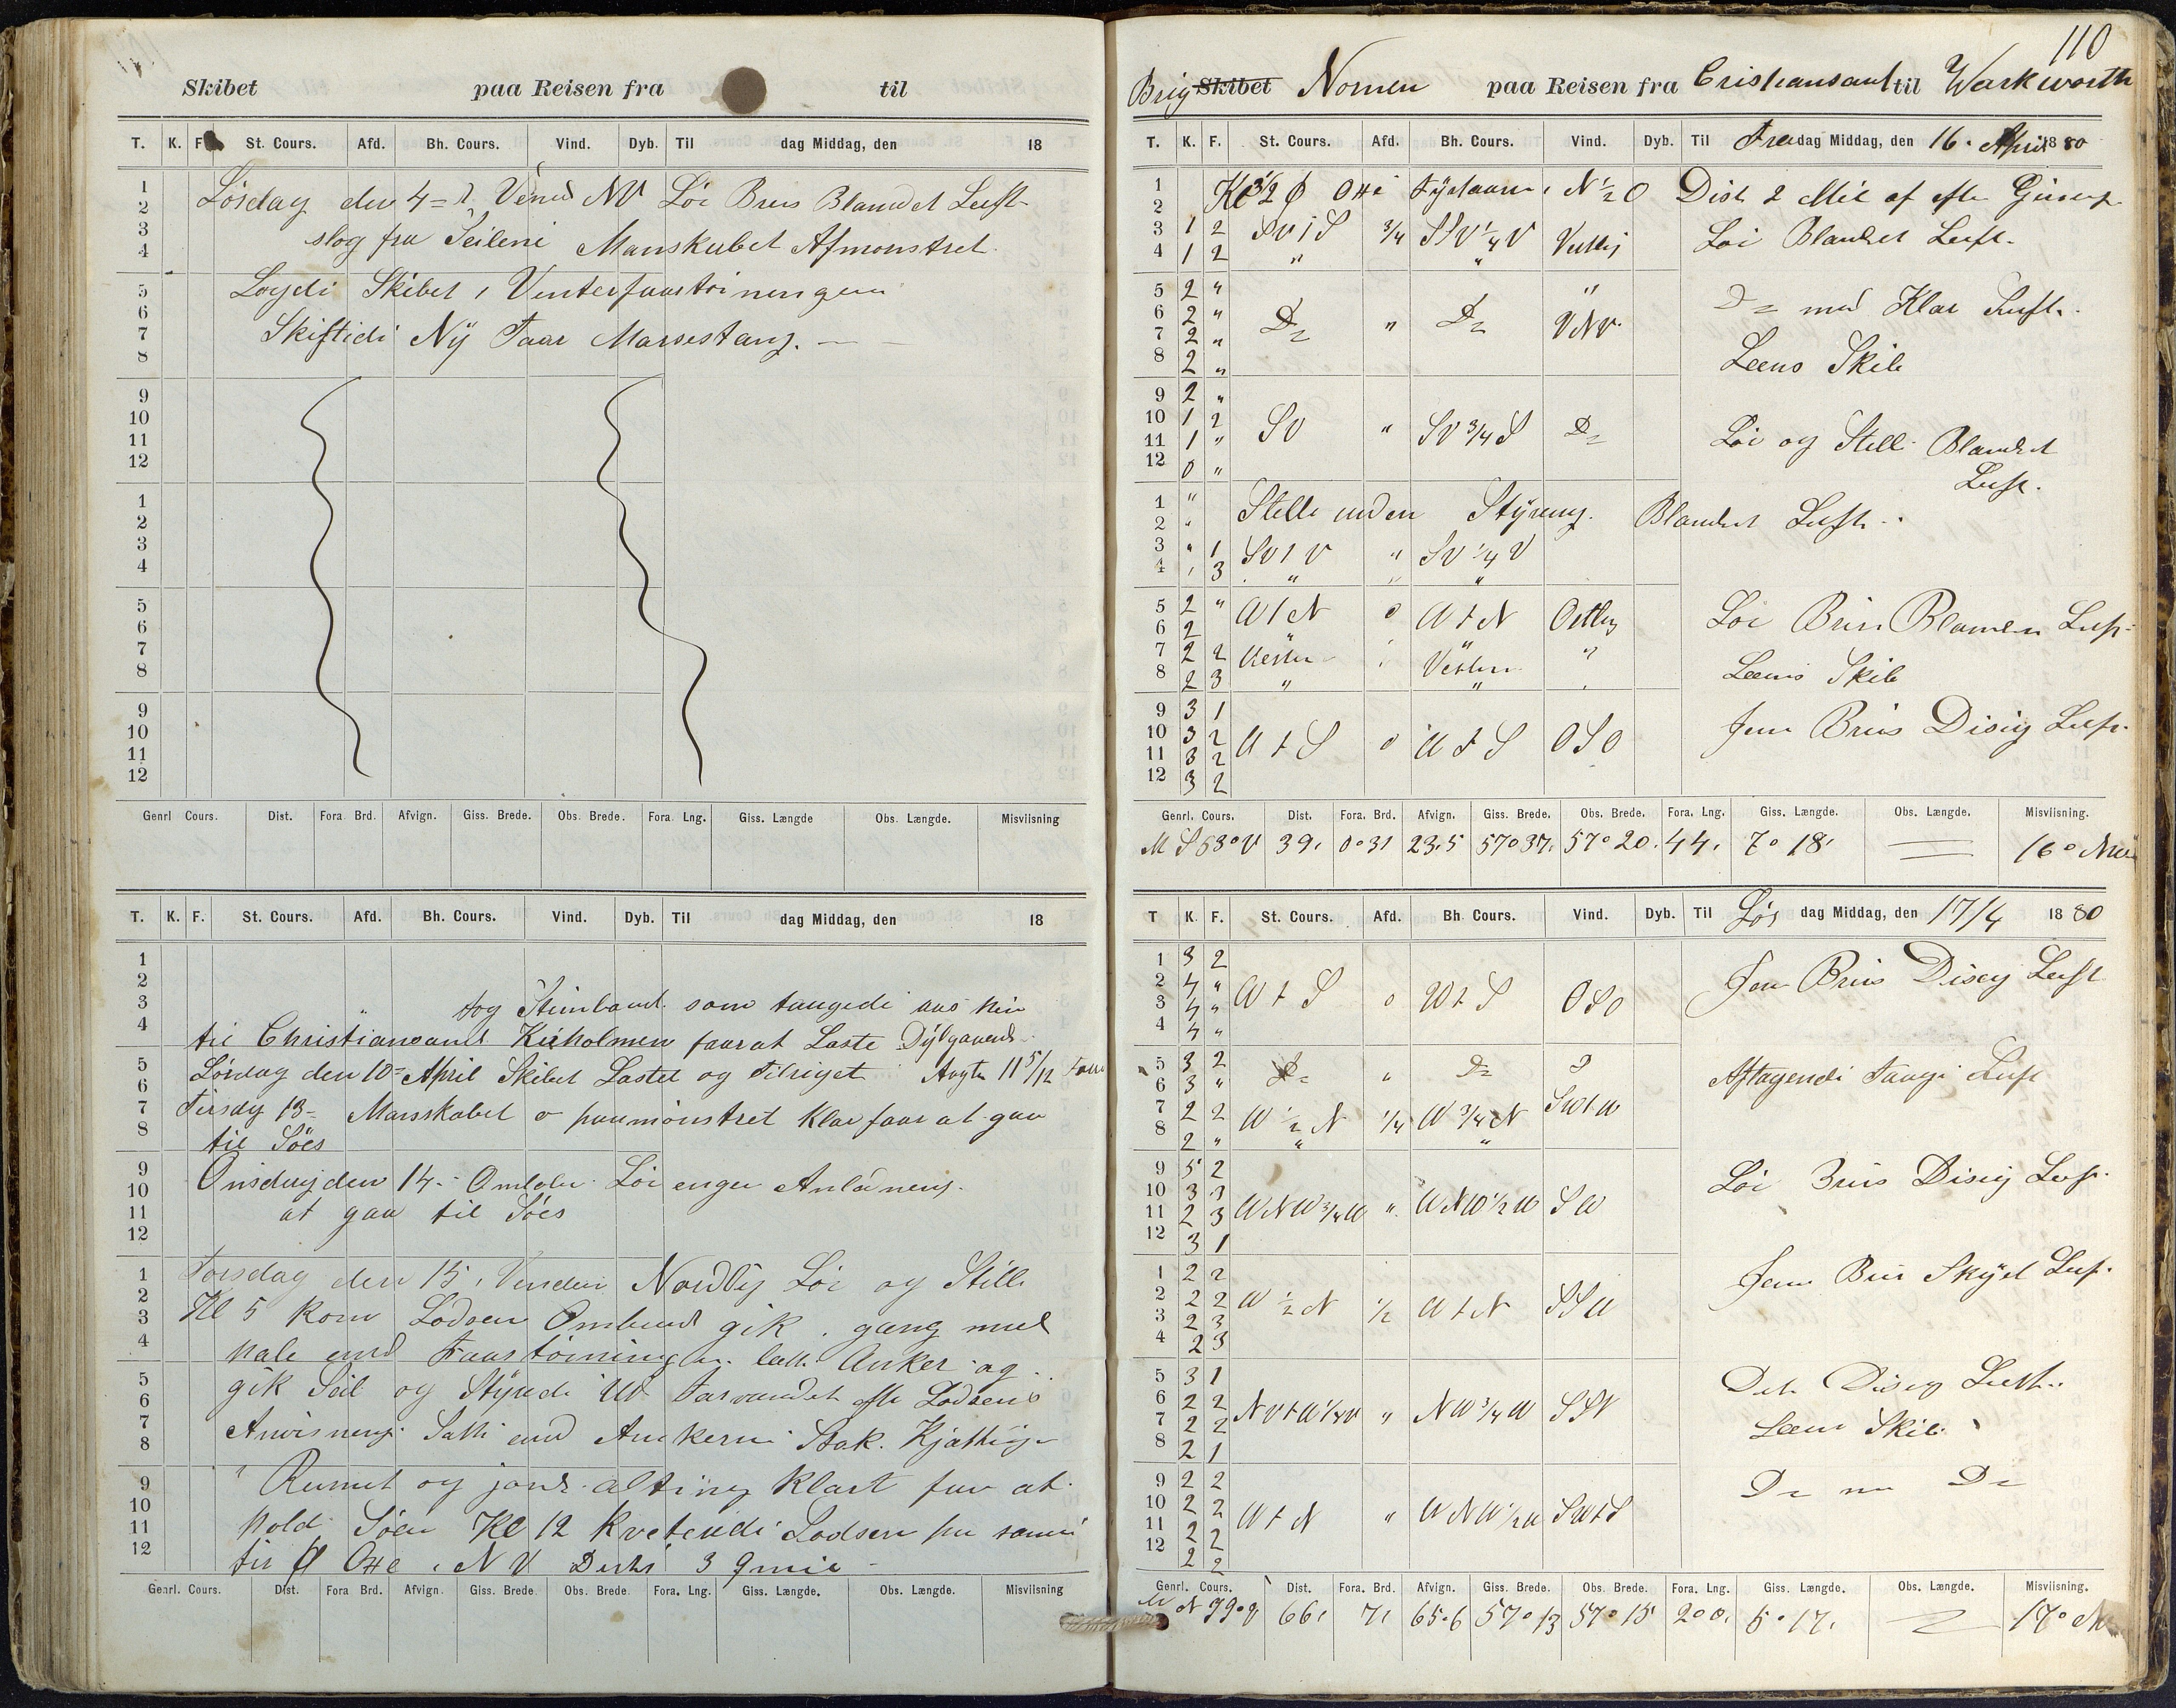 Skibet paa Reisen fra til
T. K. F. St. Cours. Afd. Bh. Cours. Vind. Dyb. Til dag Middag, den 18
1 Lösdag den 4= Vind NV Löi Bris Blandet Luft
2
3 slog fra Seilene Manskabet Afmonstret
4
5 Lagdi Skibet i Vinterfaartöiningen
6
7 Skiftidi Ny Faar Marsestang. —
8
9
10
11
12
1
2
3
4
5
6
7
8
9
10
11
12
Genrl Cours. Dist. Fora Brd. Afvign. Giss. Brede. Obs. Brede. Fora. Lng. Giss. Længde Obs. Længde. Misviisning
T. K. F. St. Cours. Afd. Bh. Cours. Vind. Dyb. Til dag Middag, den 18
1
2
3 tog Stimbaad som taugede aas hin
4 til Christiansand Kiholmen faarat Laste Dybgaaend
5 Lördag den 10= April Skibet Lastet og Tilriget Agte 11 5/12 Faar
6
7 Tirsdg 13= Manskabet paamönstret Klar faar at gaa
8 til Söes
9 Onsdag den 14. Omlöbe Löi ingen Anlednens
10
11 at gaa til Söes
12
1 Torsdag den 15. Vinden Nordlig Löi og Stille
2 Kl 5 Kom Lodsen Ombord gik i gang med
3
4 hale ind Faartöiningen lette Anker og
5 gik Seil og Styrede Ud Farvandet efter Lodsens
6
7 Anvisning. Satte ind Ankerne Stak. Kjættinge
8
9 i Rumet og jorde alting Klart for at
10
11 hold Söen Kl 12 Kvitendi Lodsen
12 NV 3 qmil
Genrl. Cours. Dist. Fora Brd. Afvign. Giss. Brede Obs. Brede Fora. Lng. Giss. Længde. Obs. Længde. Misviisning
110
Brig Skibet Nornen paa Reisen fra Cristiansand til Warkworth
T. K. F. St. Cours. Afd. Bh. Cours. Vind. Dyb. Til Fredag Middag, den 16. April 1880
1 Kl 3 1/2 N 1/2 O Dist 2 Mil af
2
3 1 2 SV t S 3/4 SSV 1/4 V Vestlig Löi Blandet Luft.
4 1 2 " "
5 2 " "
6 2 " Do " Do VNV Do med Klar Luft.
7 2 "
8 2 " Leens Skib
9 2 "
10 1 2 SV " SV 3/4 S Do Löi og Stille Blandet
11 1 "
12 0 " Luft.
1 " Stille uden Styring. Blandet Luft.
2 "
3 " 1 SV t V " SV 1/4 V
4 " 3 " " "
5 2 " W t N 0 W t N Ostlig Löi Bris Blanden Luft
6 2 " "
7 2 2 Vesten " Vesten "
8 2 3 " " Leens Skib
9 3 1
10 3 2 W t S 0 W t S OSO Jevn Bris Disig Luft.
11 3 2
12 3 2
Genrl. Cours. Dist. Fora. Brd. Afvign. Giss. Brede. Obs. Brede. Fora. Lng. Giss. Længde. Obs. Længde. Misviisning.
M S 53° V 39, 0°31 23,5 57°37, 57°20. 44, 7° 18, — 16°
T K. F. St. Cours. Afd. Bh Cours. Vind. Dyb. Til Lös dag Middag, den 17/4 1880
1 3 2
2 4 " W t S 0 W t S OSO Jevn Bris Disig Luft
3 4 "
4 4 "
5 3 2 Do " Do Do Aftagendi Taage Luft
6 3 "
7 2 2 W 1/2 N 1/4 W 3/4 N SW t W
8 2 " " "
9 5 2
10 3 3 Löi Bris Disig Luft.
11 2 3 WNW 3/4 W " WNW 1/2 W SW
12 3 1
1 2 2 Jevn Bris Skyet Luft.
2 2 2 W 1/2 N 1/2 W t N SSW
3 2 3
4 2 3
5 3 1 Det Disig Luft.
6 2 2 NV t W 1/4 W " NW 3/4 W SSV
7 2 2 Leens Skib
8 2 1
9 2 2 Do Do
10 2 2 W t N " WNW 1/2 W SW t S
11 2 2
12 2 2
Genrl. Cours. Dist. Fora. Brd. Afvign. Giss. Brede Obs. Brede. Fora. Lng. Giss. Længde. Obs. Længde. Misviisning.
N 99° V 66, 7, 65.6 57°13 57°15 200. 5°17, — 17°